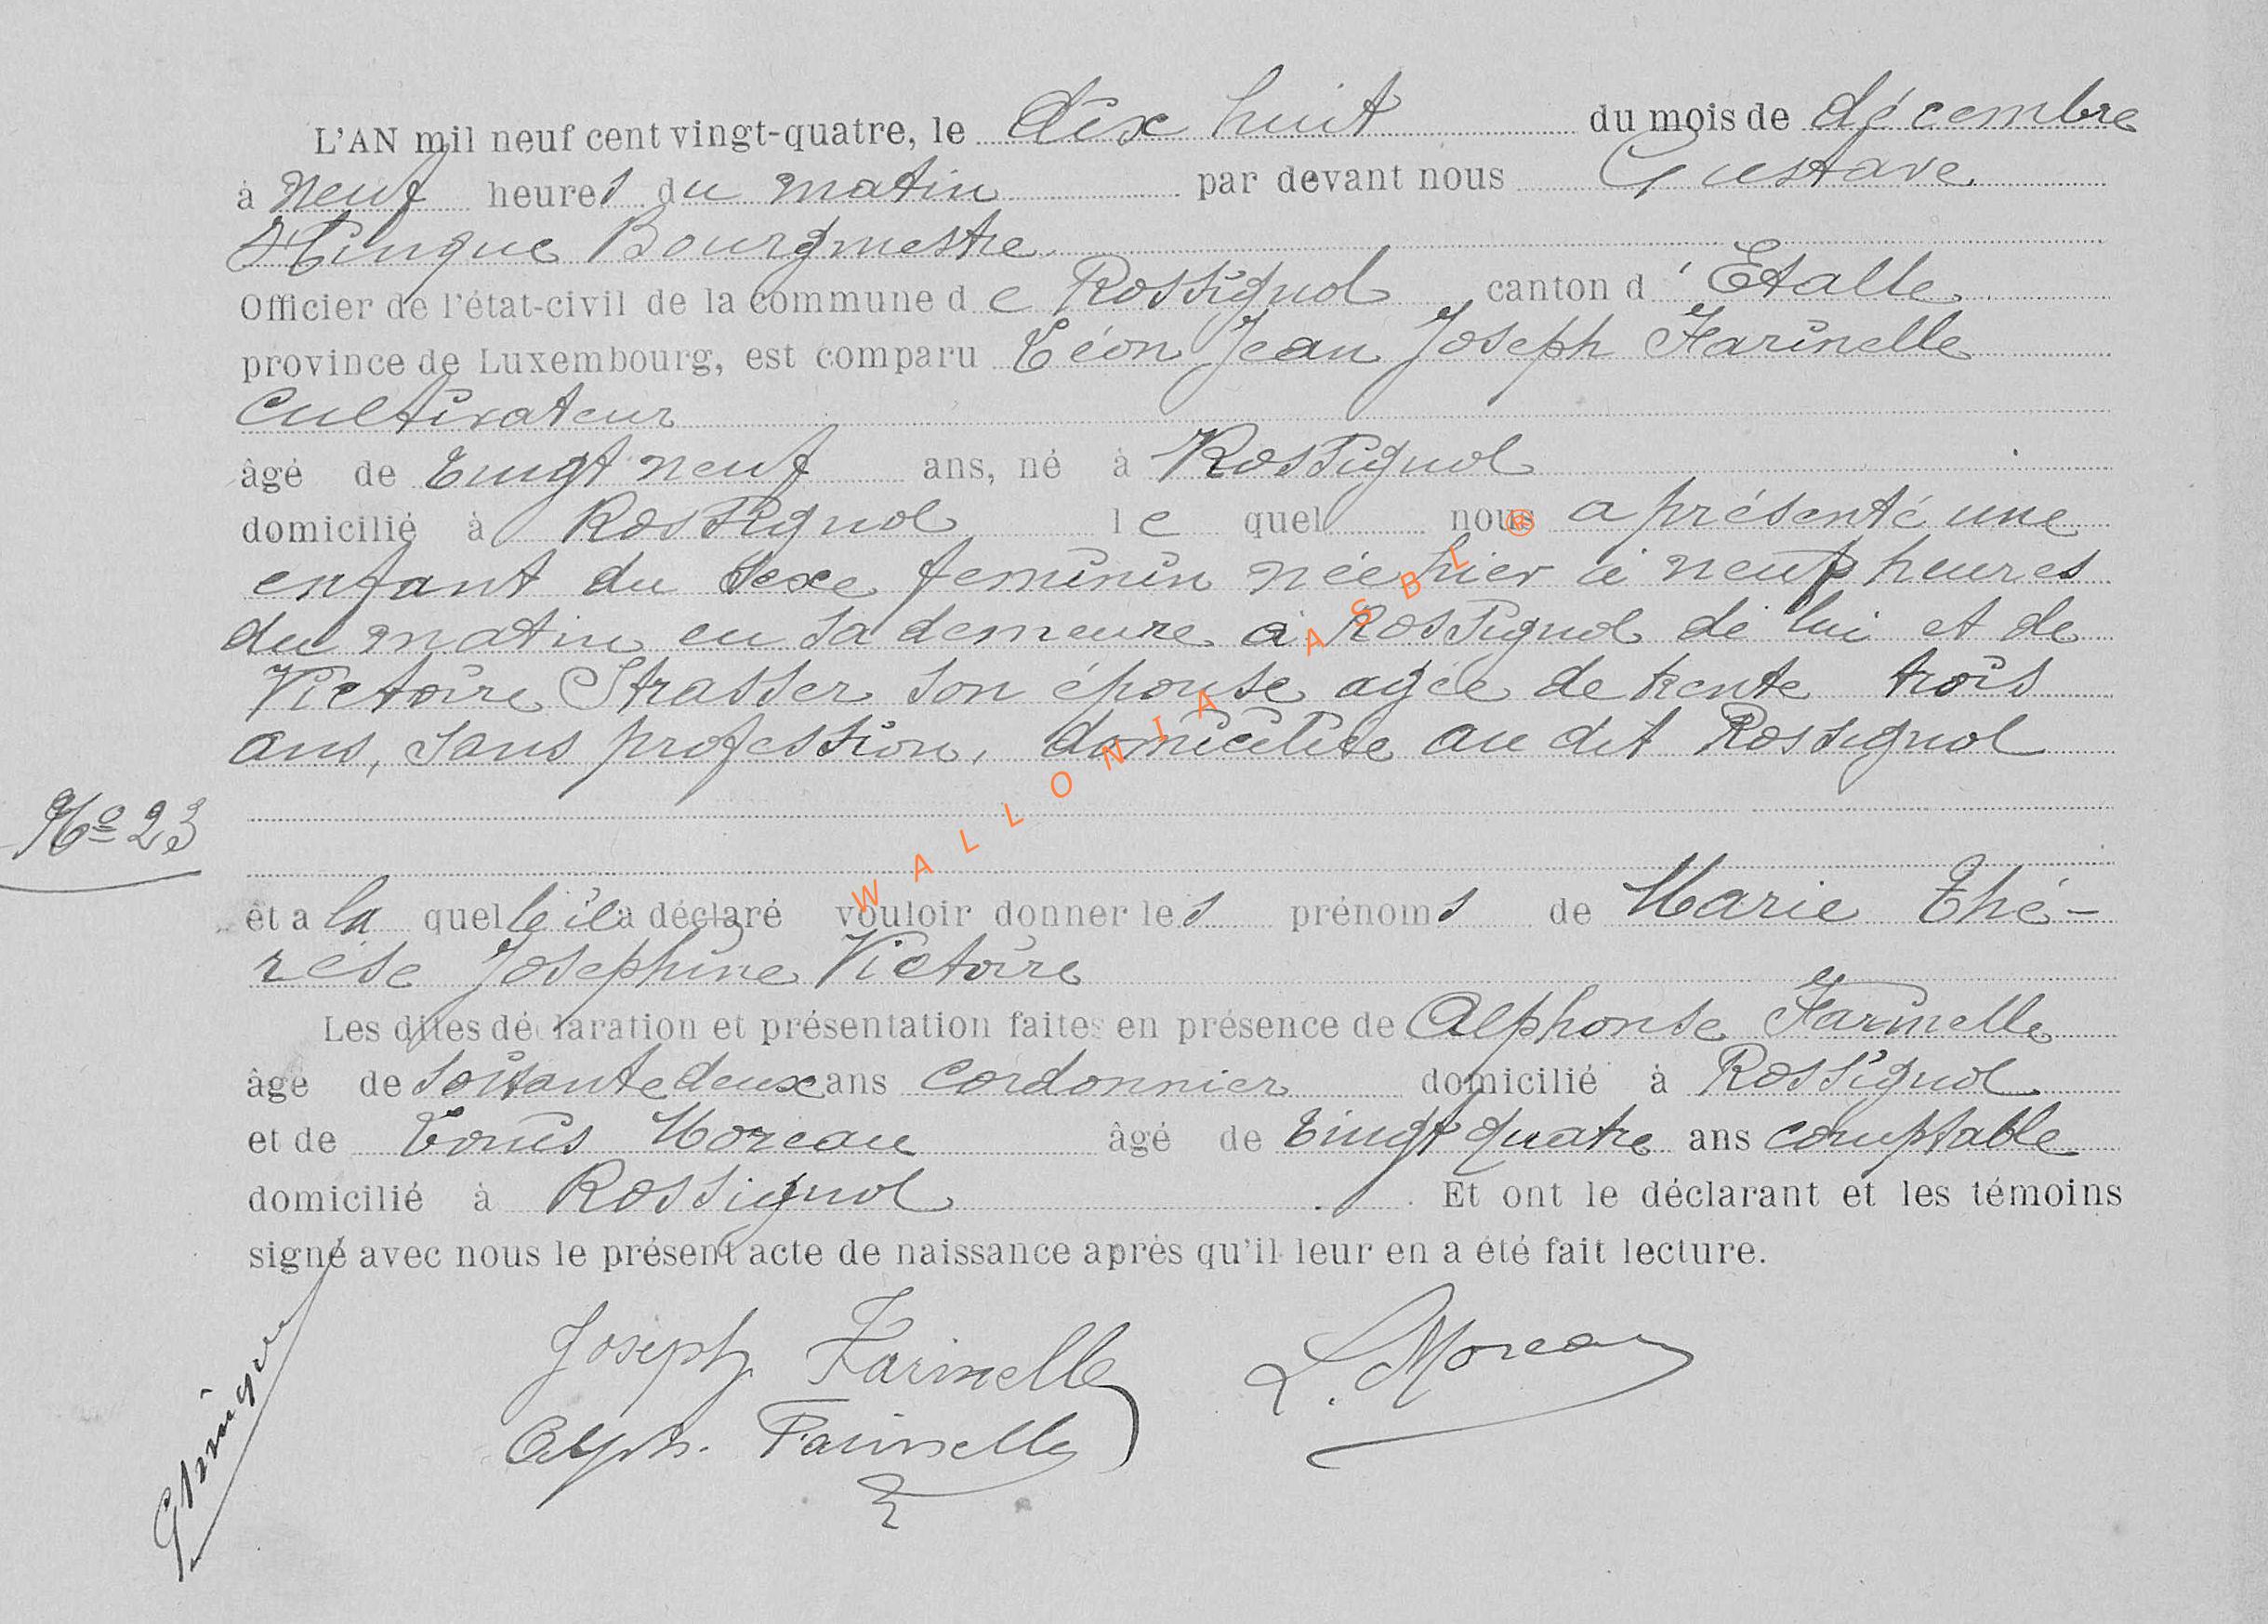 L'AN mil neuf cent vingt-quatre, le dix huit du mois de décembre
à neuf heures du matin par devant nous Gustave
Hinque Bourgmestre
Officier de l'état-civil de la commune de Rossignol canton d'Etalle
province de Luxembourg, est comparu Léon Jean Joseph Farinelle
Cultivateur
âgé de vingt neuf ans, né à Rossignol
domicilié à Rossignol le quel nous a présenté une
enfant du sexe feminin née hier à neuf heures
du matin en sa demeure à Rossignol de lui et de
Victoire Strasser son épouse agée de trente trois
ans, sans profession, domiciliée au dit Rossignol
No 23
et a la quelle il a déclaré vouloir donner les prénoms de Marie Thé-
rèse Josephine Victoire
Les dites déclaration et présentation faites en présence de Alphonse Farinelle
âgé de soixante deux ans cordonnier domicilié à Rossignol
et de Louis Moreau âgé de vingt quatre ans comptable
domicilié à Rossignol Et ont le déclarant et les témoins
signé avec nous le présent acte de naissance après qu'il leur en a été fait lecture.
Joseph Farinelle L. Moreau
Alph. Farinelle
GHinque
WALLONIA ASBL ®